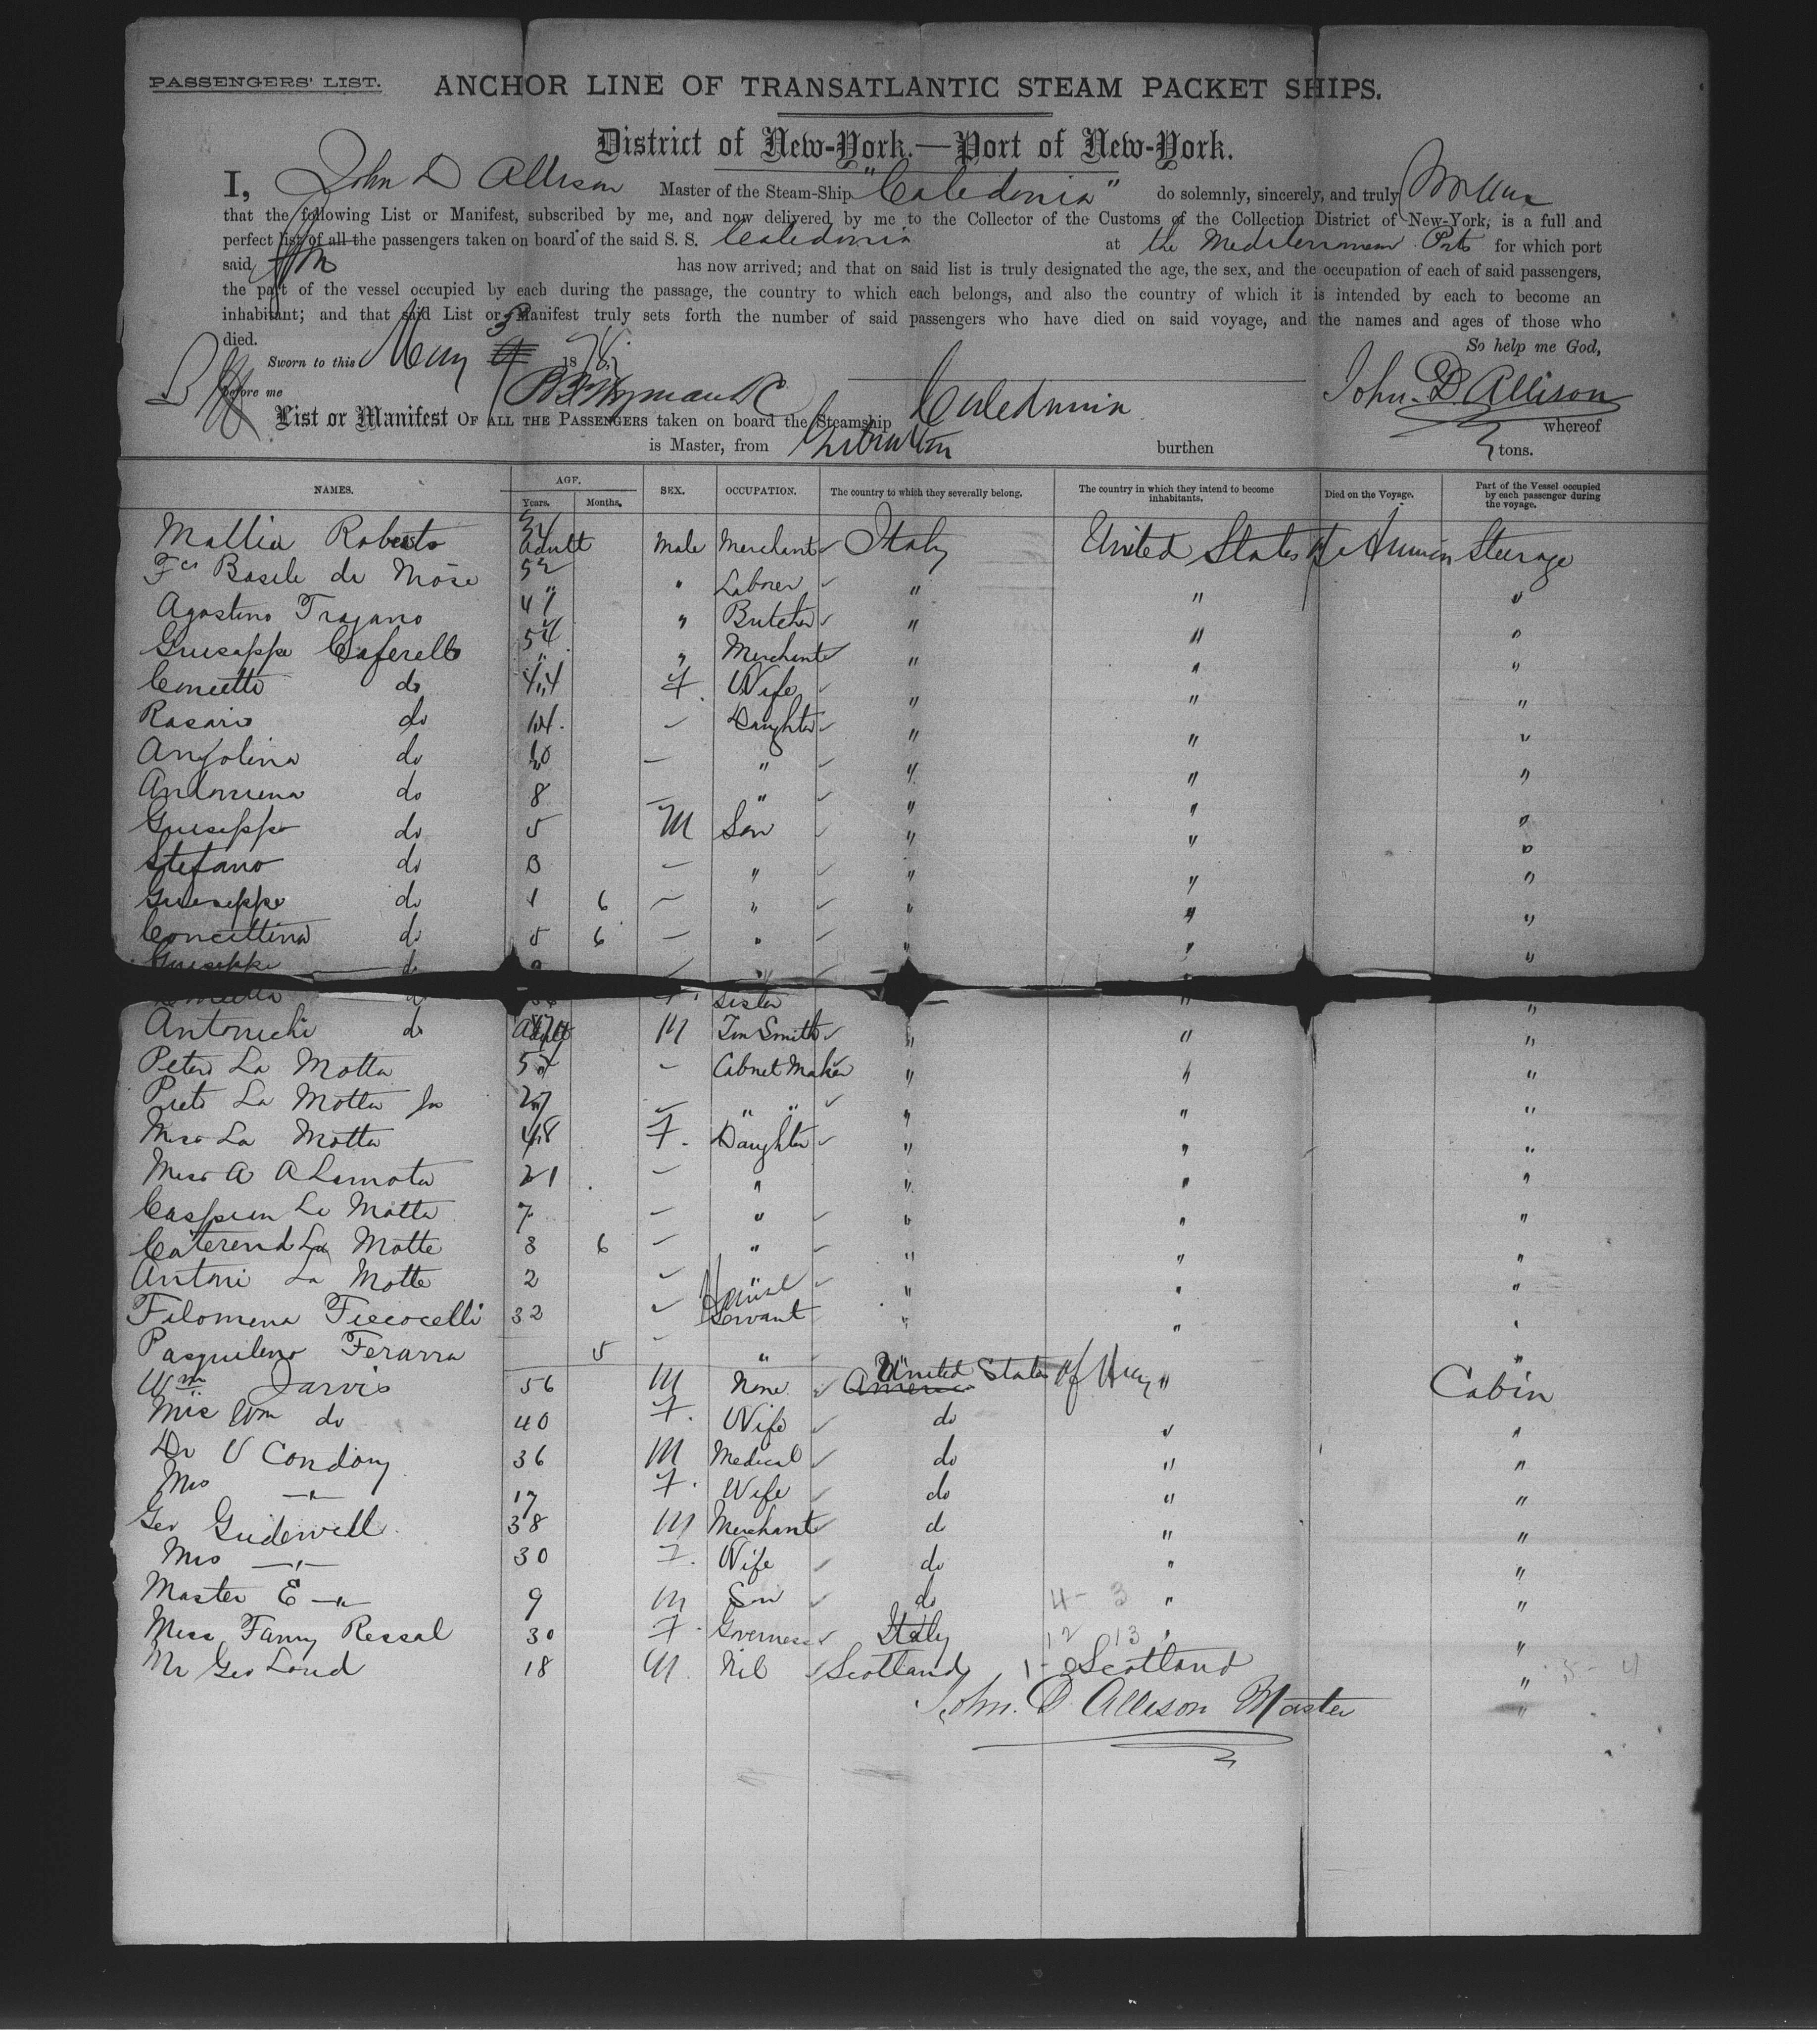 PASSENGERS' LIST. ANCHOR LINE OF TRANSATLANTIC STEAM PACKET SHIPS.
District of New-York.—Port of New-York.
I, John D Allison Master of the Steam-Ship "Caledonia" do solemnly, sincerely, and truly
that the following List or Manifest, subscribed by me, and now delivered by me to the Collector of the Customs of the Collection District of New-York, is a full and
perfect list of all the passengers taken on board of the said S. S. Caledonia at the Mediterranean Ports for which port
said has now arrived; and that on said list is truly designated the age, the sex, and the occupation of each of said passengers,
the part of the vessel occupied by each during the passage, the country to which each belongs, and also the country of which it is intended by each to become an
inhabitant; and that said List or Manifest truly sets forth the number of said passengers who have died on said voyage, and the names and ages of those who
died.
So help me God,
Sworn to this May 3 1878
before me John. D. Allison
List or Manifest OF ALL THE PASSENGERS taken on board the Steamship Caledonia whereof
is Master, from Gibraltar burthen tons.
NAMES. AGE. Years. Months. SEX. OCCUPATION. The country to which they severally belong. The country in which they intend to become inhabitants. Died on the Voyage. Part of the Vessel occupied by each passenger during the voyage.
Mallia Roberto Adult Male Merchant Italy United States of Steerage
Basile di Mose 52 " Laborer " " "
Agostino Trajano 47 " Butcher " " "
Giuseppe Caferello 54 " Merchant " " "
Concetta do 44 F. Wife " " "
Rasario do 14 Daughter " " "
Angolina do 10 " " " "
Andomena do 8 " " " "
Guiseppe do 5 M Son " " "
Stefano do 3 " " " "
Guiseppe do 1 6 " " " "
Concettina do 5 6 " " " "
Guiseppe do " "
do F. Sister " "
do Adult M Tin Smith " " "
Peter La Motta 54 Cabnet Maker " " "
La Motta Jr 27 " " " " "
Miss La Motta 48 F. Daughter " " "
Miss A A Lamota 21 " " " "
La Motta 7 " " " "
Caterina La Motte 3 6 " " " "
Antoni La Motte 2 " " " "
Filomena Fiecocelli 32 House Servant " " "
Pasquileno Ferarra 5 " " "
Wm Jarvis 56 M None United States of " Cabin
Mrs Wm do 40 F. Wife do " "
Dr V Condory 36 M Medical do " "
Mrs —"— 17 F. Wife do " "
Geo Gridewell 38 M Merchant d " "
Mrs —"— 30 F. Wife do " "
Master E —"— 9 M Son do 4- 3 " "
Miss Fanny Ressal 30 F Governess Italy 12 13 " "
Mr Geo Lond 18 M. Nil Scotland Scotland "
John. D Allison Master